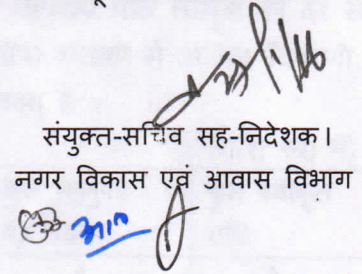 संयुक्त-सचिव सह-निदेशक।
नगर विकास एवं आवास विभाग